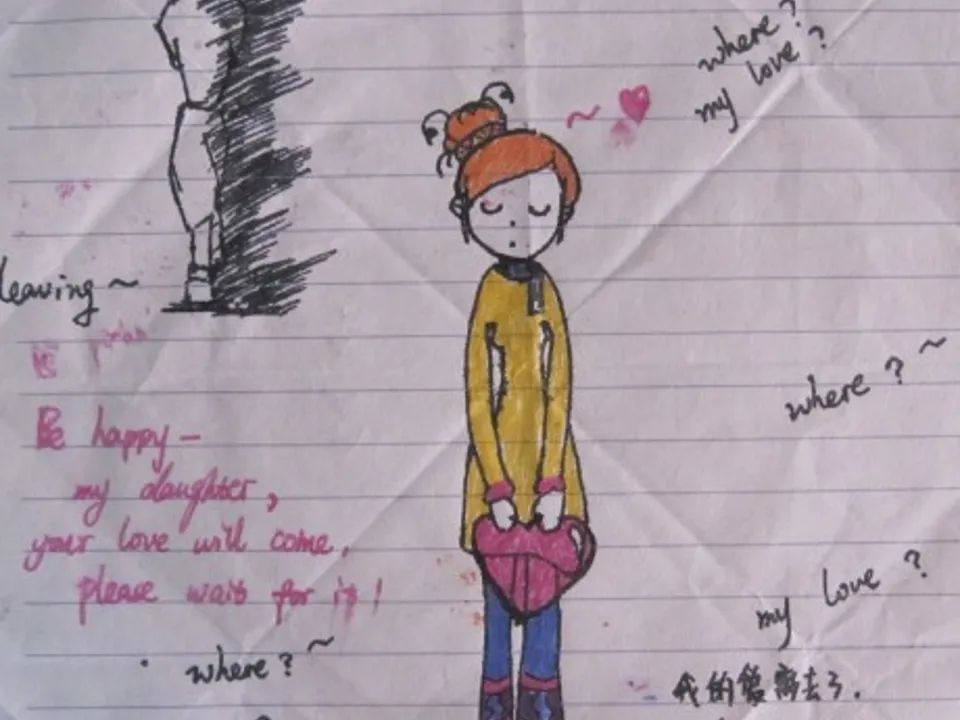 where?
my love?
leaving ~
Be happy —
my daughter,
your love will come,
please wait for it!
where? ~
where? ~
my love ?
我的爱离去了.